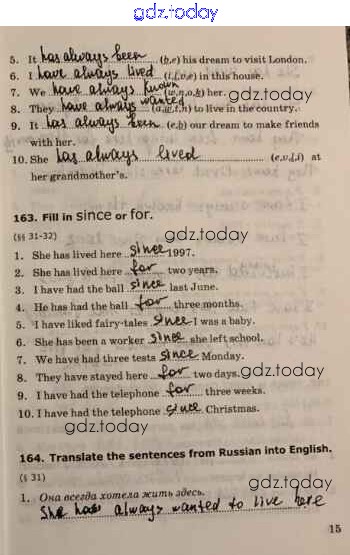 gdz.today
5. It has always been (b,e) his dream to visit London.
6. I have always lived (i,l,v,e) in this house.
7. We have always known (w,n,o,k) her.
gdz.today
8. They have always wanted (a,w,t,n) to live in the country.
9. It has always been (e,b) our dream to make friends
with her.
10. She has always lived (e,v,l,i) at
her grandmother's.
163. Fill in since or for.
gdz.today
(§§ 31-32)
1. She has lived here since 1997.
2. She has lived here for two years.
3. I have had the ball since last June.
4. He has had the ball for three months.
5. I have liked fairy-tales since I was a baby.
6. She has been a worker since she left school.
7. We have had three tests since Monday.
8. They have stayed here for two days.
gdz.today
9. I have had the telephone for three weeks.
10. I have had the telephone since Christmas.
gdz.today
164. Translate the sentences from Russian into English.
(§ 31)
1. Она всегда хотела жить здесь.
She has always wanted to live here
15
gdz.today